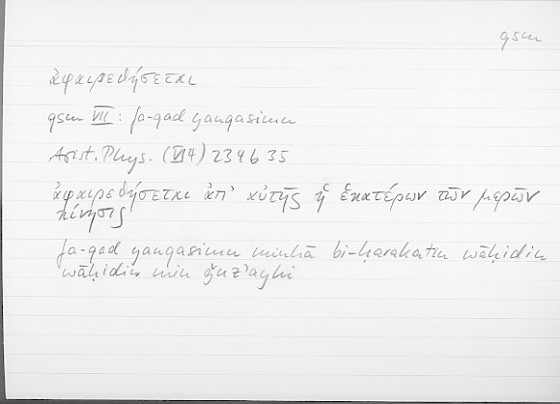 qsm
ἀφαιρεθήσεται
qsm VII : fa-qad yanqasimu
Arist. Phys. (VI 4) 234 b 35
ἀφαιρεθήσεται ἀπ' αὐτῆς ἡ ἑκατέρων τῶν μερῶν
κίνησις
fa-qad yanqasimu minhā bi-ḥarakatin wāḥidin
wāḥidin min ǧuz'ayhi